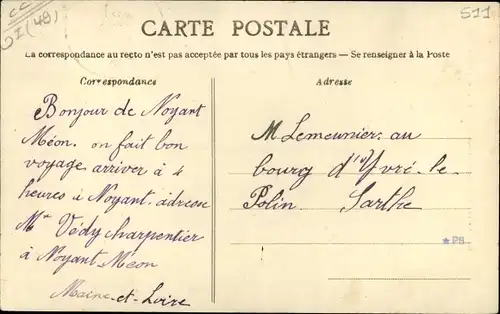 CC
I (49)
511
CARTE POSTALE
La correspondance au recto n'est pas acceptée par tous les pays étrangers — Se renseigner à la Poste
Correspondance
Bonjour de Noyant
Méon. on fait bon
voyage arriver à 4
heures à Noyant. adresse
Mr Védy charpentier
à Noyant-Méon
Maine-et-Loire
Adresse
M Lemeunier au
bourg d'Yvré-le-
Polin Sarthe
★PB